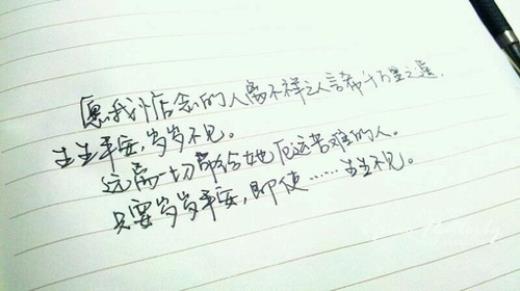 愿我惦念的人离不祥之人言希千万里之遥。
生生平安,岁岁不见。
远离一切带给她厄运苦难的人。
只要岁岁平安,即使……生生不见。